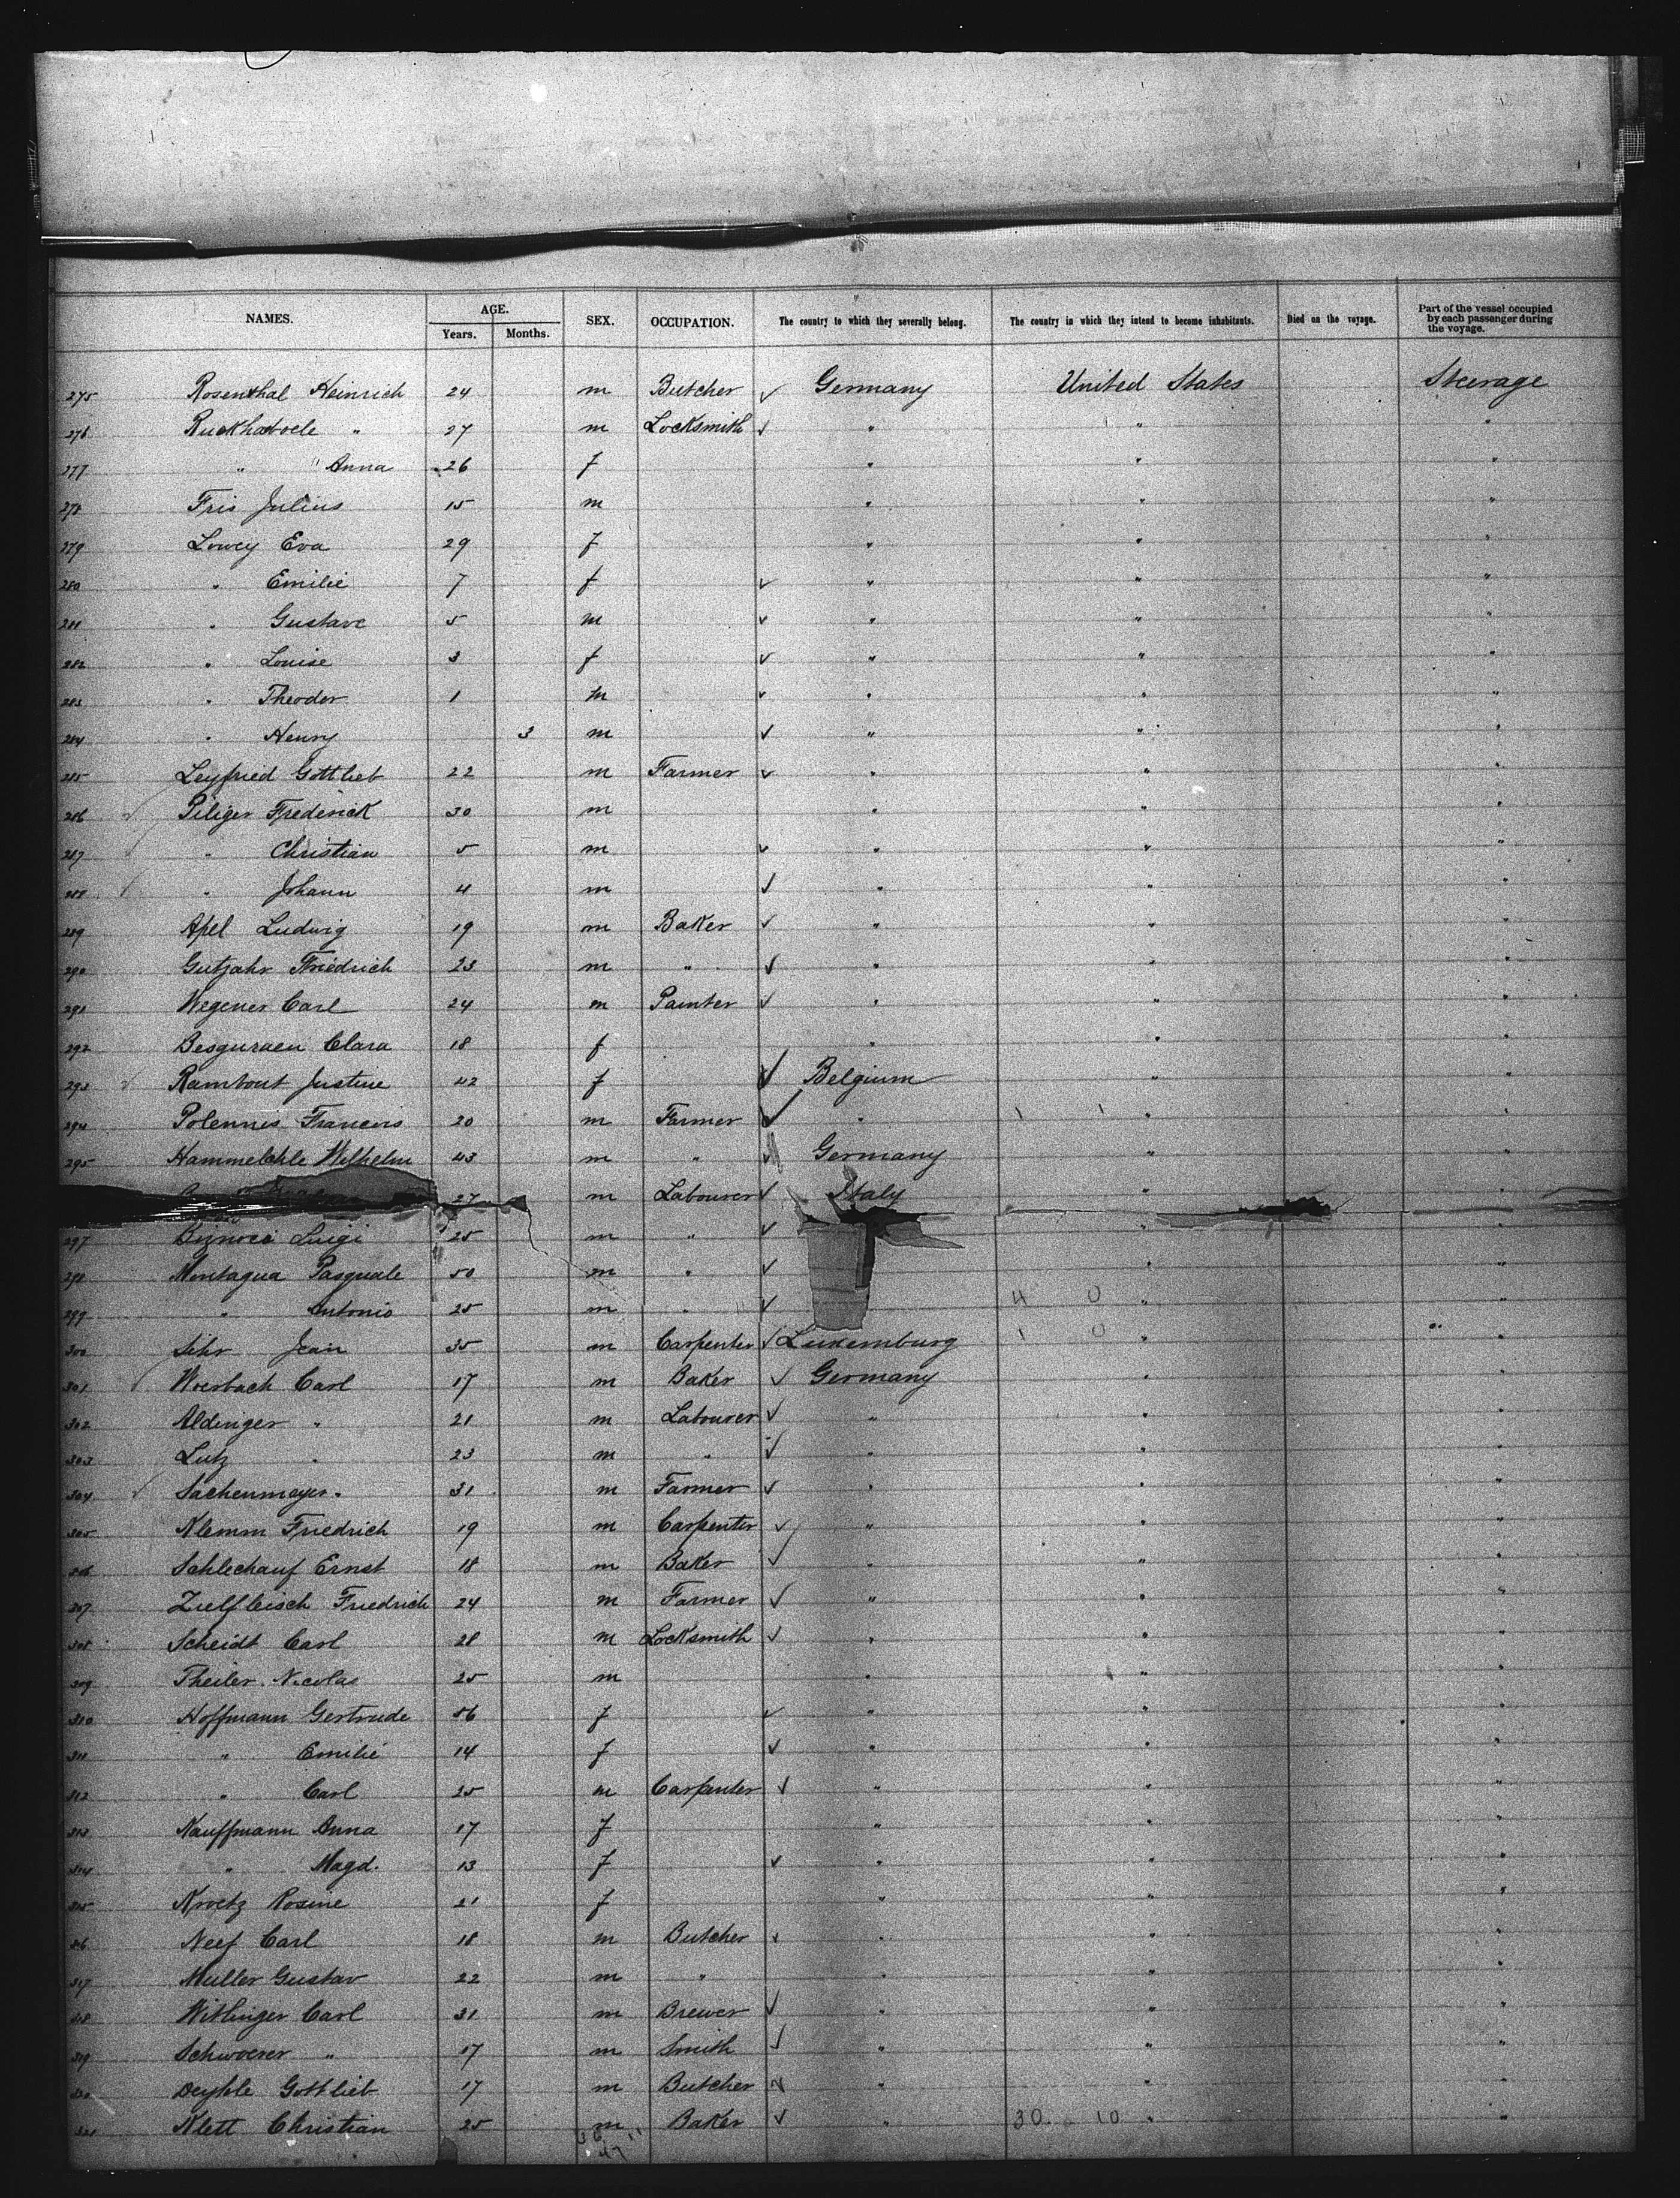 NAMES. AGE. Years. Months. SEX. OCCUPATION. The country to which they severally belong. The country in which they intend to become inhabitants. Died on the voyage. Part of the vessel occupied by each passenger during the voyage.
275 Rosenthal Heinrich 24 m Butcher ✓ Germany United States Steerage
276 " 27 m Locksmith ✓ " " "
277 " " Anna 26 f " " "
278 Fris Julius 15 m " " "
279 Lowey Eva 29 f " " "
280 " Emilie 7 f ✓ " " "
281 " Gustave 5 m ✓ " " "
282 " Louise 3 f ✓ " " "
283 " Theodor 1 m ✓ " " "
284 " Henry 3 m ✓ " " "
285 Leyfried Gottlieb 22 m Farmer ✓ " " "
286 ✓ Piliger Frederick 30 m " " "
287 ✓ " Christian 5 m ✓ " " "
288 ✓ " Johann 4 m ✓ " " "
289 Apel Ludwig 19 m Baker ✓ " " "
290 Gutjahr Friedrich 23 m " ✓ " " "
291 Wegener Carl 24 m Painter ✓ " " "
292 Clara 18 f " " "
293 ✓ Rambout Justine 42 f ✓ Belgium " "
294 Polennis Francois 20 m Farmer ✓ " 1 1 " "
295 Hammelehle Wilhelm 43 m " ✓ Germany " "
27 m Labourer ✓ Italy " "
297 Luigi 25 m " ✓ " "
298 Montagua Pasquale 50 m " ✓ " "
299 " Antonio 25 m " ✓ 4 0 " "
300 Sihr Jean 35 m Carpenter ✓ Luxemburg 1 0 " "
301 ✓ Woisbach Carl 17 m Baker ✓ Germany " "
302 Aldinger " 21 m Labourer ✓ " " "
303 Lutz " 23 m " ✓ " " "
304 ✓ Sachenmayer " 31 m Farmer ✓ " " "
305 Klemm Friedrich 19 m Carpenter ✓ " " "
306 Schlechauf Ernst 18 m Baker ✓ " " "
307 Zielfleisch Friedrich 24 m Farmer ✓ " " "
308 Scheidt Carl 28 m Locksmith ✓ " " "
309 Theiler Nicolas 25 m " " "
310 Hoffmann Gertrude 56 f ✓ " " "
311 " Emilie 14 f ✓ " " "
312 " Carl 25 m Carpenter ✓ " " "
313 Kauffmann Anna 17 f " " "
314 " Magd. 13 f ✓ " " "
315 Kroetz Rosine 21 f " " "
316 Neef Carl 18 m Butcher ✓ " " "
317 Muller Gustav 22 m " " " "
318 Witlinger Carl 31 m Brewer ✓ " " "
319 Schwoerer " 17 m Smith ✓ " " "
320 Deyhle Gottlieb 17 m Butcher ✓ " " "
321 Klett Christian 25 m Baker ✓ " 30 10 " "
36 11
47